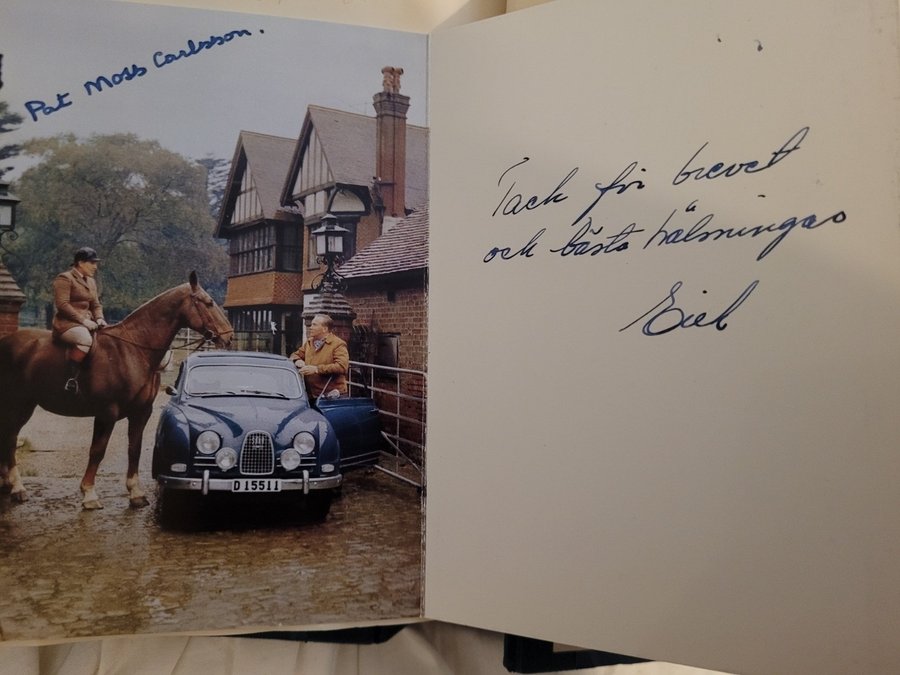 Pat Moss Carlsson.
D 15511
Tack för brevet
och bästa hälsningar
Erik